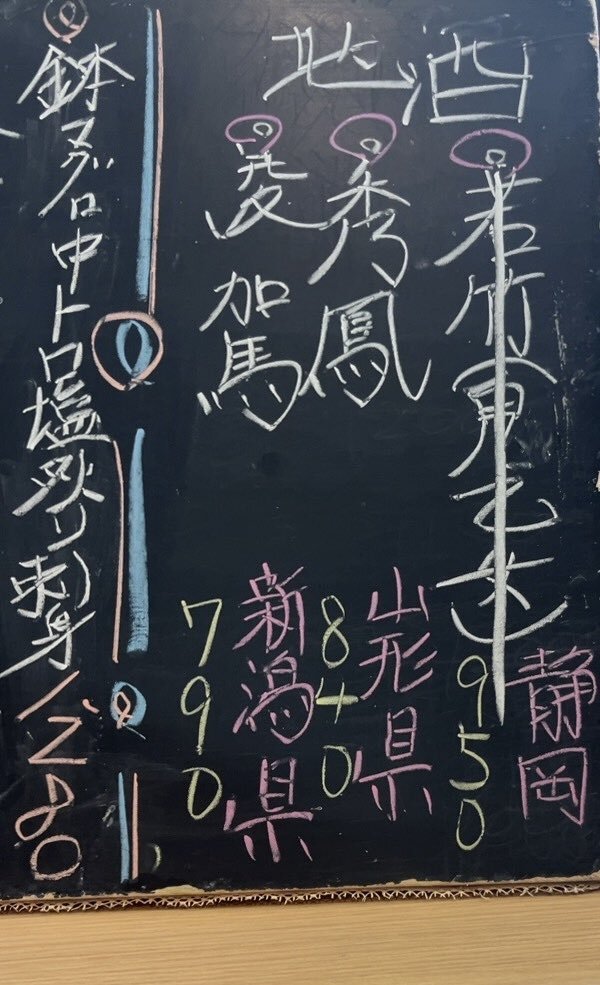 地酒
若竹
静岡
950
秀鳳
山形県
840
加馬
新潟県
790
鉢マグロ中トロ塩炙り刺身 1280